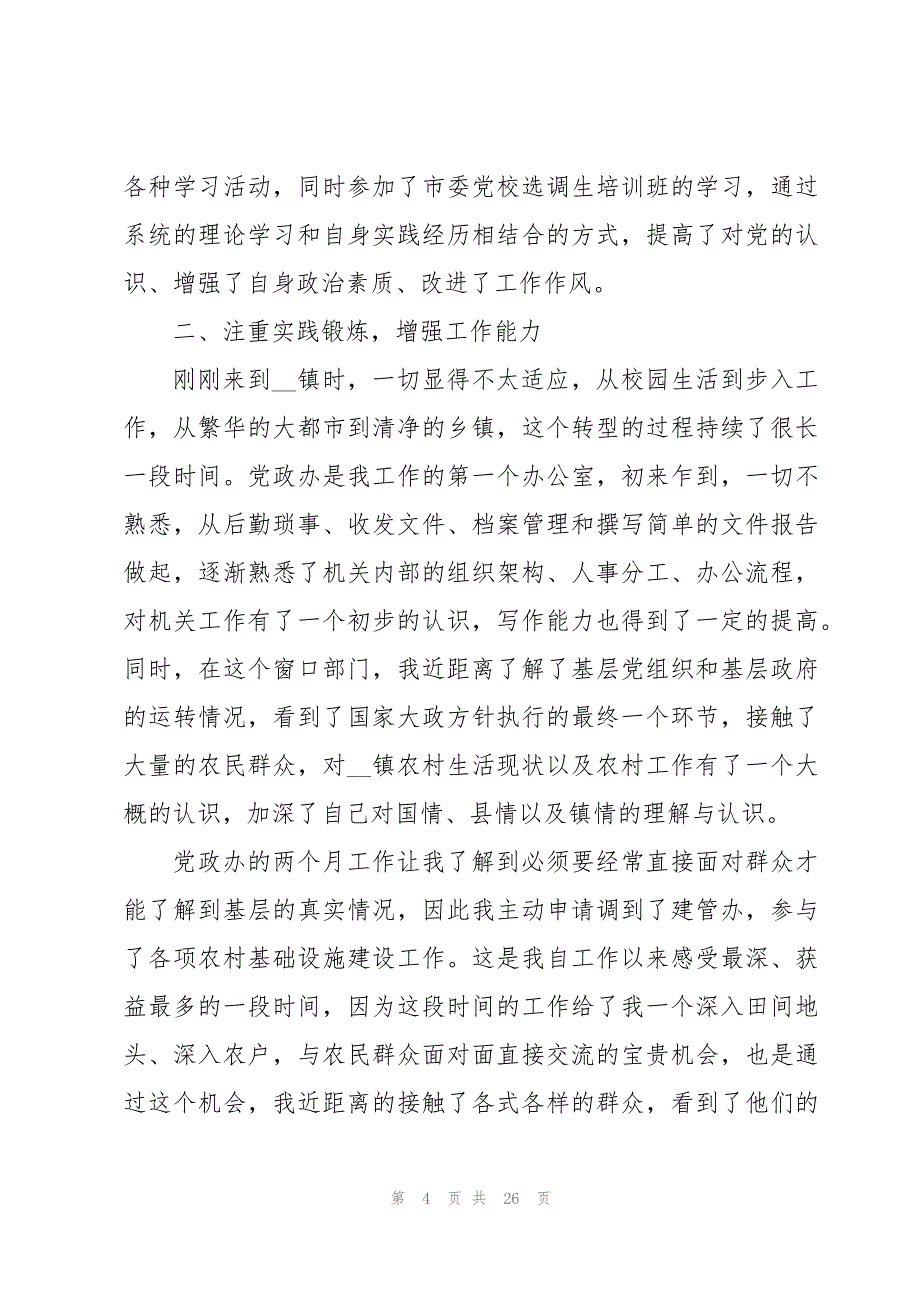 各种学习活动，同时参加了市委党校选调生培训班的学习，通过
系统的理论学习和自身实践经历相结合的方式，提高了对党的认
识、增强了自身政治素质、改进了工作作风。
二、注重实践锻炼，增强工作能力
刚刚来到__镇时，一切显得不太适应，从校园生活到步入工
作，从繁华的大都市到清净的乡镇，这个转型的过程持续了很长
一段时间。党政办是我工作的第一个办公室，初来乍到，一切不
熟悉，从后勤琐事、收发文件、档案管理和撰写简单的文件报告
做起，逐渐熟悉了机关内部的组织架构、人事分工、办公流程，
对机关工作有了一个初步的认识，写作能力也得到了一定的提高。
同时，在这个窗口部门，我近距离了解了基层党组织和基层政府
的运转情况，看到了国家大政方针执行的最终一个环节，接触了
大量的农民群众，对__镇农村生活现状以及农村工作有了一个大
概的认识，加深了自己对国情、县情以及镇情的理解与认识。
党政办的两个月工作让我了解到必须要经常直接面对群众才
能了解到基层的真实情况，因此我主动申请调到了建管办，参与
了各项农村基础设施建设工作。这是我自工作以来感受最深、获
益最多的一段时间，因为这段时间的工作给了我一个深入田间地
头、深入农户，与农民群众面对面直接交流的宝贵机会，也是通
过这个机会，我近距离的接触了各式各样的群众，看到了他们的
第 4 页 共 26 页